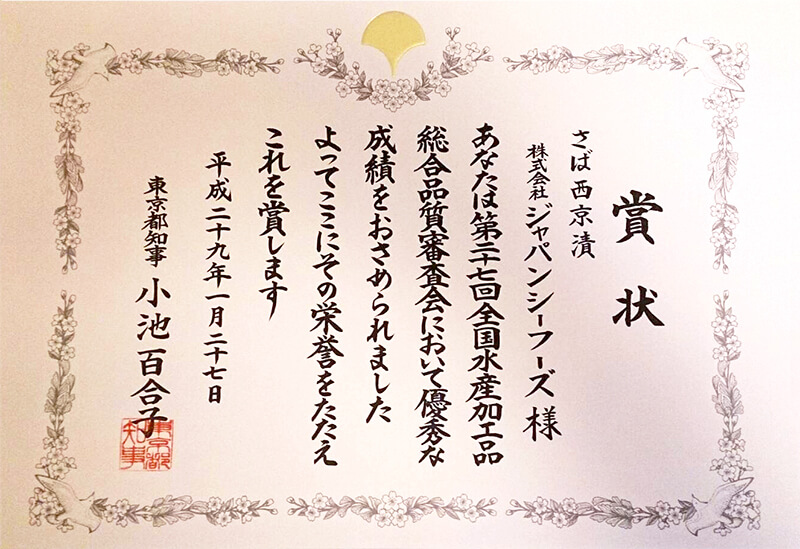 賞状
さば西京漬
株式会社ジャパンシーフーズ様
あなたは第二十七回全国水産加工品
総合品質審査会において優秀な
成績をおさめられました
よってここにその栄誉をたたえ
これを賞します
平成二十九年一月二十七日
東京都知事 小池百合子
東京都
知事